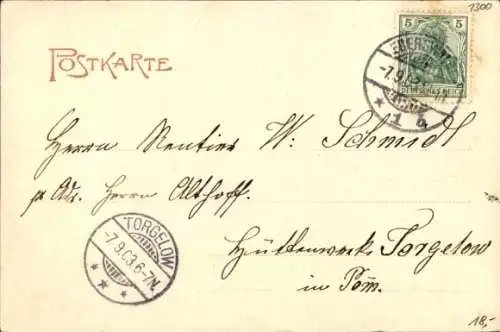 1300
POSTKARTE
5 5
DEUTSCHES REICH
-7.9.03.
* 1 b
Herrn Rentier W. Schmidt
p Adr. Herrn Althoff.
TORGELOW
-7.9.03.6-7N.
* * *
Hüttenwerk Torgelow
in Pom.
18,-